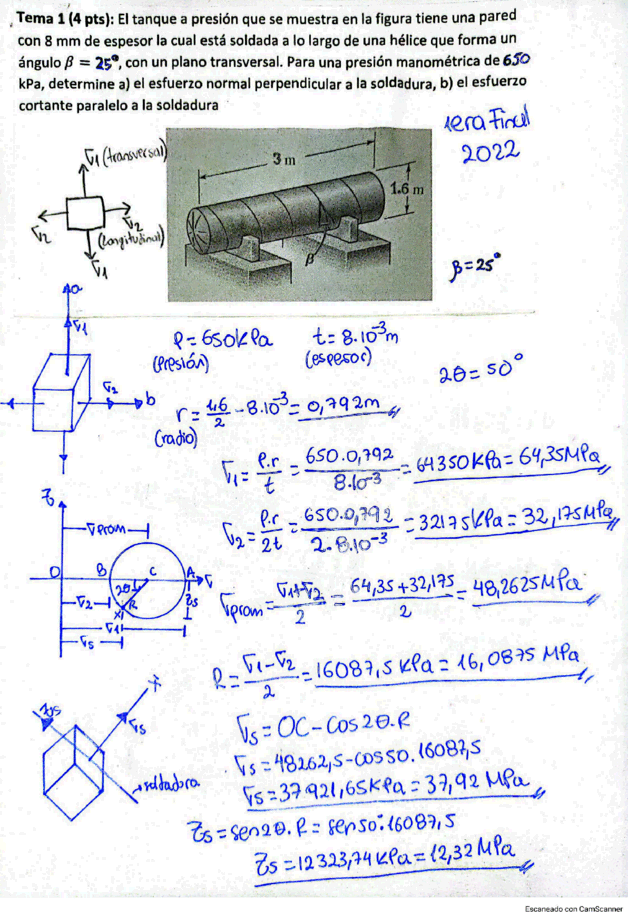 Tema 1 (4 pts): El tanque a presión que se muestra en la figura tiene una pared
con 8 mm de espesor la cual está soldada a lo largo de una hélice que forma un
ángulo β = 25°, con un plano transversal. Para una presión manométrica de 650
kPa, determine a) el esfuerzo normal perpendicular a la soldadura, b) el esfuerzo
cortante paralelo a la soldadura
1era Final
2022
σ1 (transversal)
σ2
σ2
(longitudinal)
σ1
3 m
1.6 m
β
β=25°
a
σ1
σ2
b
P=650kPa
(presión)
t=8.10⁻³m
(espesor)
2θ=50°
r=1,6/2-8.10⁻³=0,792m
(radio)
σ1=P.r/t=650.0,792/8.10⁻³=64350kPa=64,35MPa
σ2=P.r/2t=650.0,792/2.8.10⁻³=32175kPa=32,175MPa
σprom=σ1+σ2/2=64,35+32,175/2=48,2625MPa
R=σ1-σ2/2=16087,5kPa=16,0875 MPa
σs=OC-Cos2θ.R
σs=48262,5-cos50.16087,5
σs=37921,65kPa=37,92MPa
Zs=sen2θ.R=sen50°.16087,5
Zs=12323,74kPa=12,32MPa
Z
σprom
O
B
C
A
σ
2θ
R
X
Zs
σ2
σ1
σs
Zs
σs
soldadora
Escaneado con CamScanner